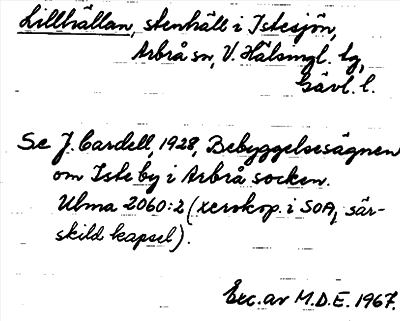 Lillhällan, stenhäll i Istesjön,
Arbrå sn, V. Hälsingl. tg,
Gävl. l.
Se J. Cardell, 1928, Bebyggelsesägnen
om Iste by i Arbrå socken.
Ulma 2060:2 (xerokop. i SOA, sär-
skild kapsel).
Exc. av M.D.E. 1967.